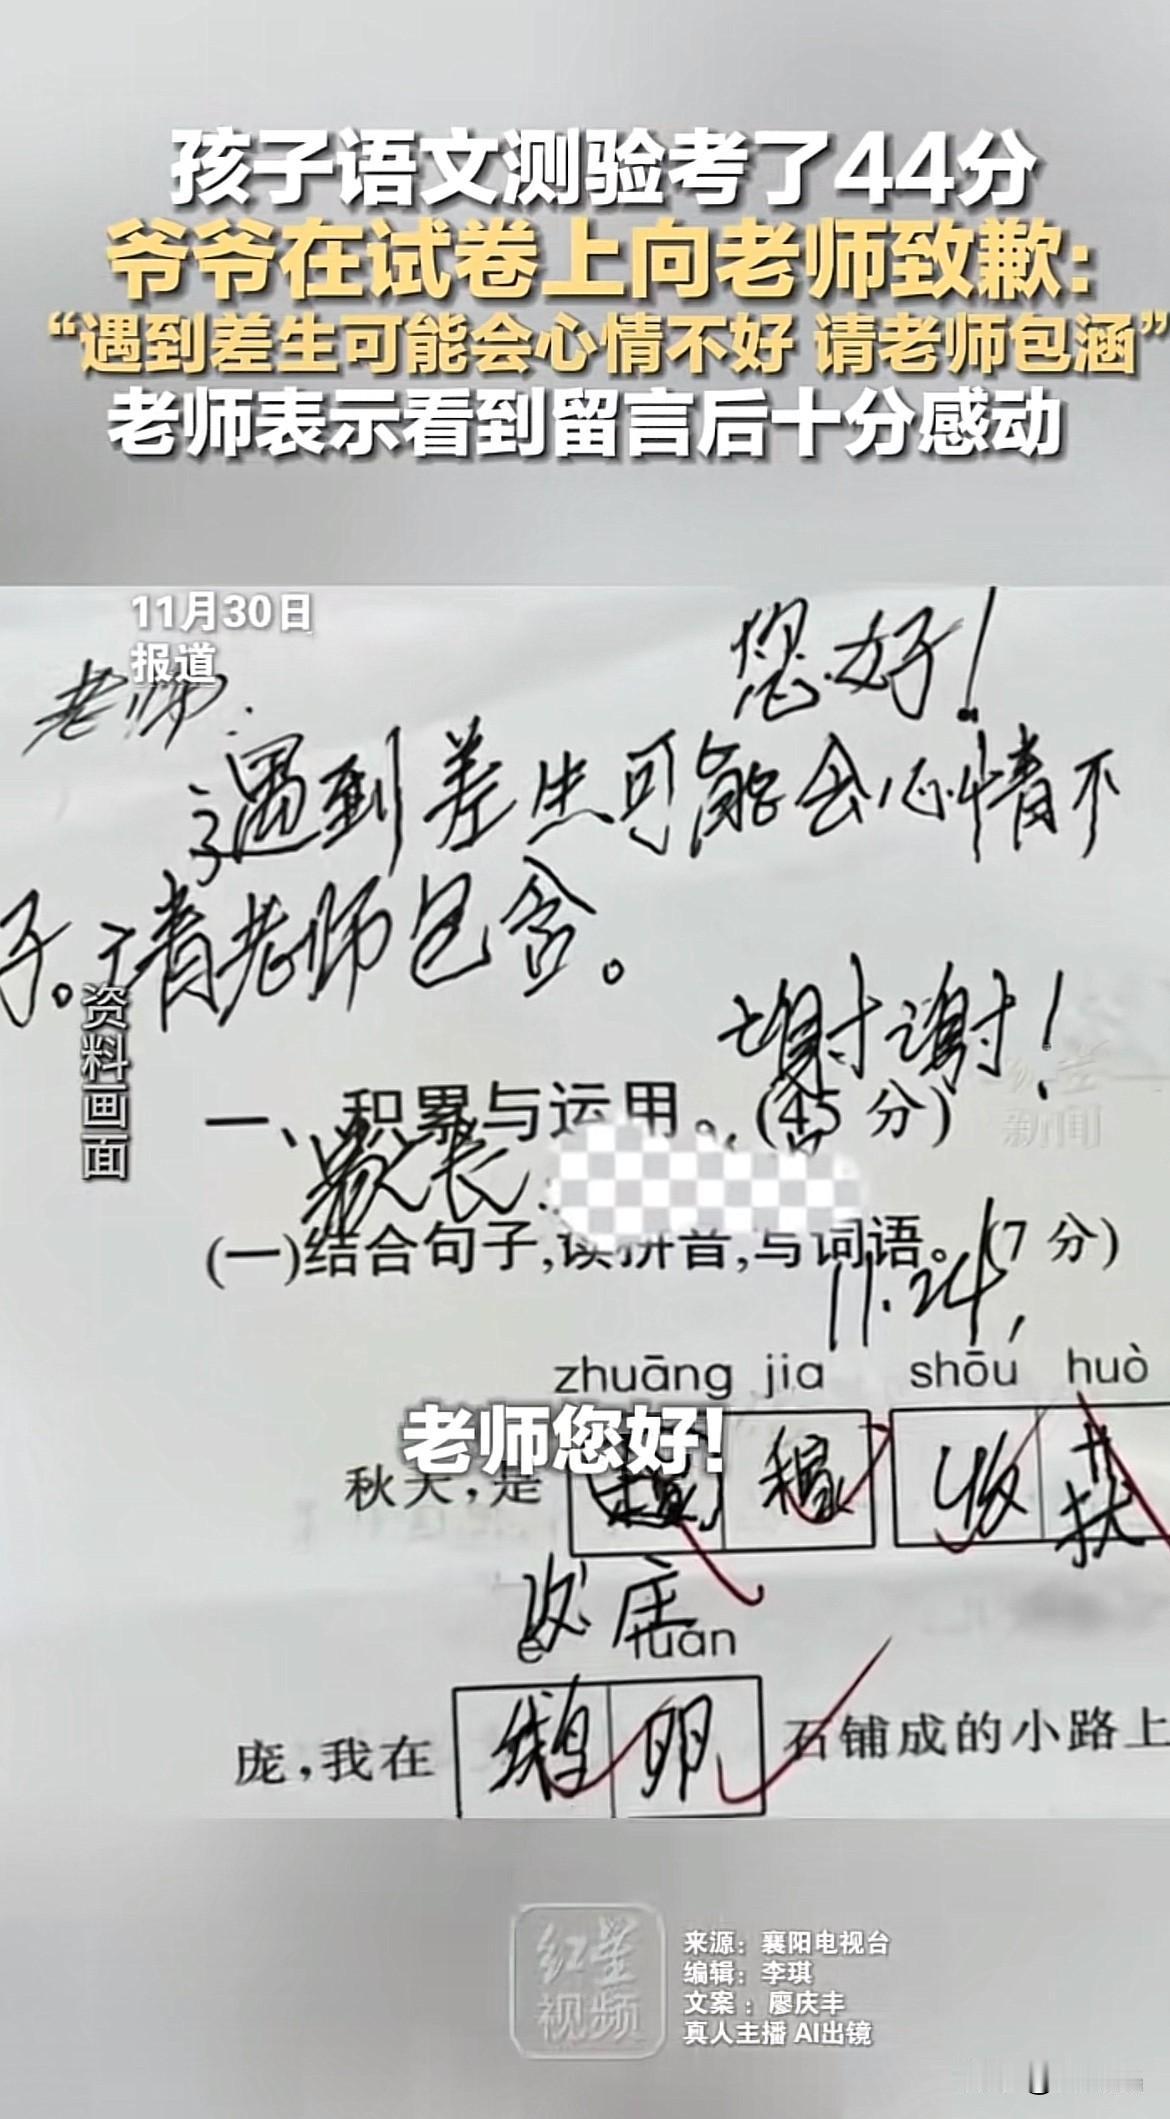 孩子语文测验考了44分
爷爷在试卷上向老师致歉:
“遇到差生可能会心情不好 请老师包涵”
老师表示看到留言后十分感动
11月30日
报道
老师:
您好!
遇到差生可能会心情不
好。请老师包含。
谢谢!
资料画面
红星
新闻
一、积累与运用。(45分)
家长:
(一)结合句子,读拼音,写词语。(7分)
11.24,
zhuāng jia shōu huò
老师您好!
秋天,是 稼 收
庄
é luǎn
庞,我在 鹅卵 石铺成的小路上
红星
视频
来源：襄阳电视台
编辑：李琪
文案：廖庆丰
真人主播 AI出镜